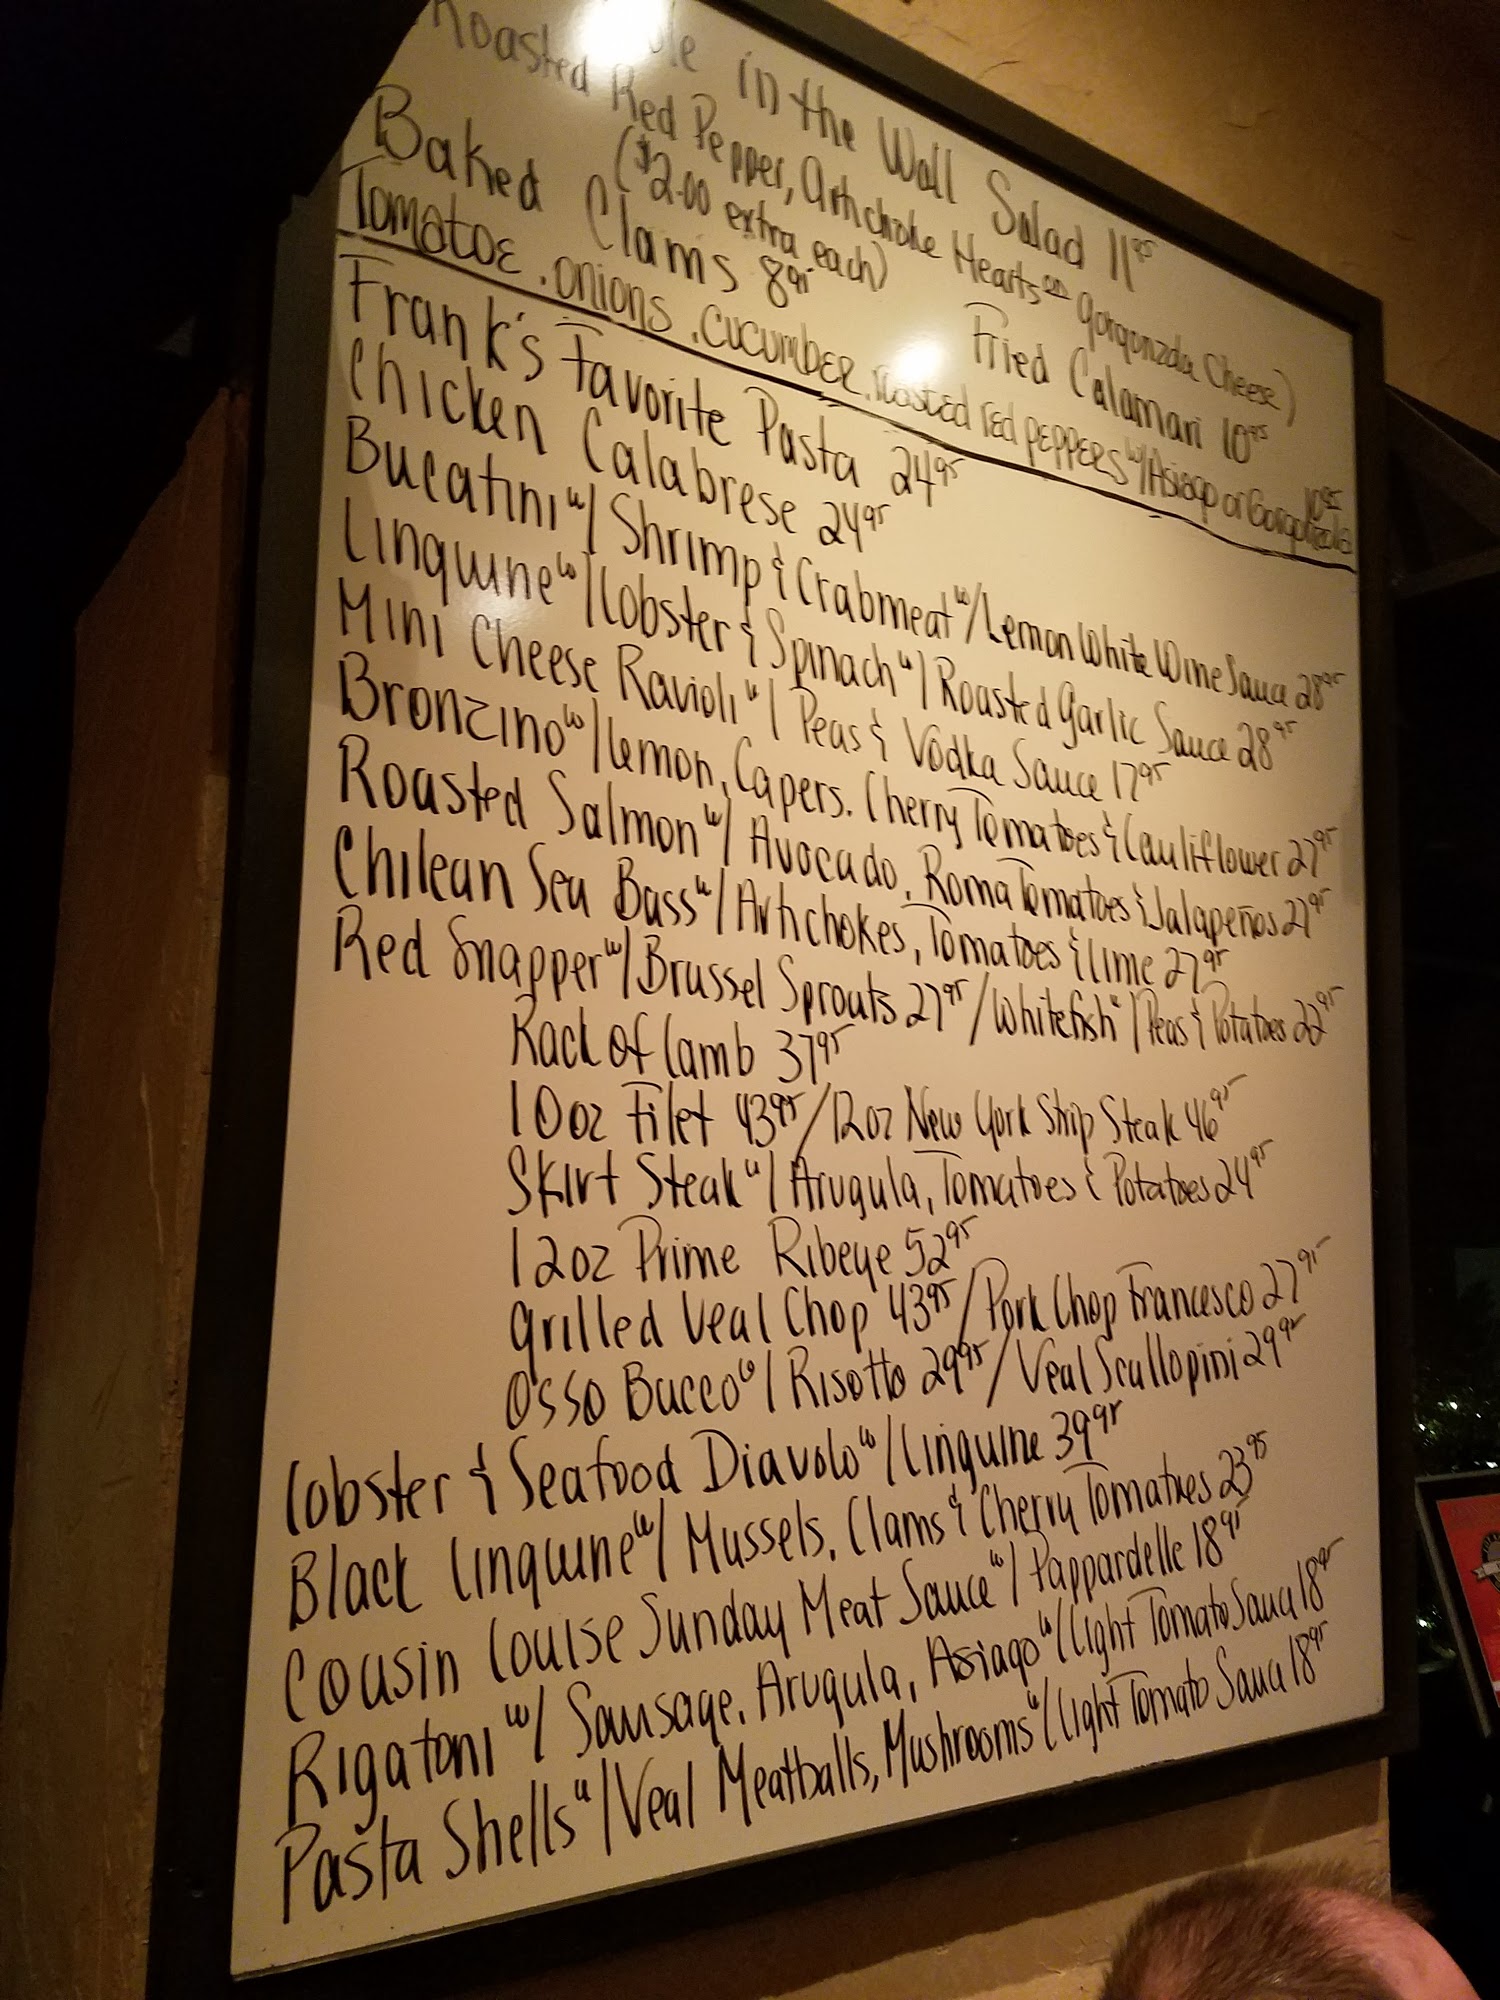 in the Wall Salad 11.95
Roasted Red Pepper, Artichoke Hearts on Gorgonzola Cheese)
($2.00 extra each)
Baked Clams 8.95 Fried Calamari 10.95
Tomatoe, onions, cucumber, roasted red peppers w/Asiago or Gorgonzola 10.95
Frank's Favorite Pasta 24.95
Chicken Calabrese 24.95
Bucatini w/ Shrimp & Crabmeat w/ Lemon White Wine Sauce 28.95
Linguine w/ Lobster & Spinach w/ Roasted Garlic Sauce 28.95
Mini Cheese Ravioli w/ Peas & Vodka Sauce 17.95
Bronzino w/ Lemon, Capers, Cherry Tomatoes & Cauliflower 27.95
Roasted Salmon w/ Avocado, Roma Tomatoes & Jalapeños 27.95
Chilean Sea Bass w/ Artichokes, Tomatoes & Lime 27.95
Red Snapper w/ Brussel Sprouts 27.95 / Whitefish w/ Peas & Potatoes 22.95
Rack of Lamb 37.95
10oz Filet 43.95 / 12oz New York Strip Steak 46.95
Skirt Steak w/ Arugula, Tomatoes & Potatoes 24.95
12oz Prime Ribeye 52.95
Grilled Veal Chop 43.95 / Pork Chop Francesco 27.95
Osso Bucco w/ Risotto 29.95 / Veal Scallopini 29.95
Lobster & Seafood Diavolo w/ Linguine 39.95
Black Linguine w/ Mussels, Clams & Cherry Tomatoes 23.95
Cousin Louise Sunday Meat Sauce w/ Pappardelle 18.95
Rigatoni w/ Sausage, Arugula, Asiago w/ Light Tomato Sauce 18.95
Pasta Shells w/ Veal Meatballs, Mushrooms w/ Light Tomato Sauce 18.95